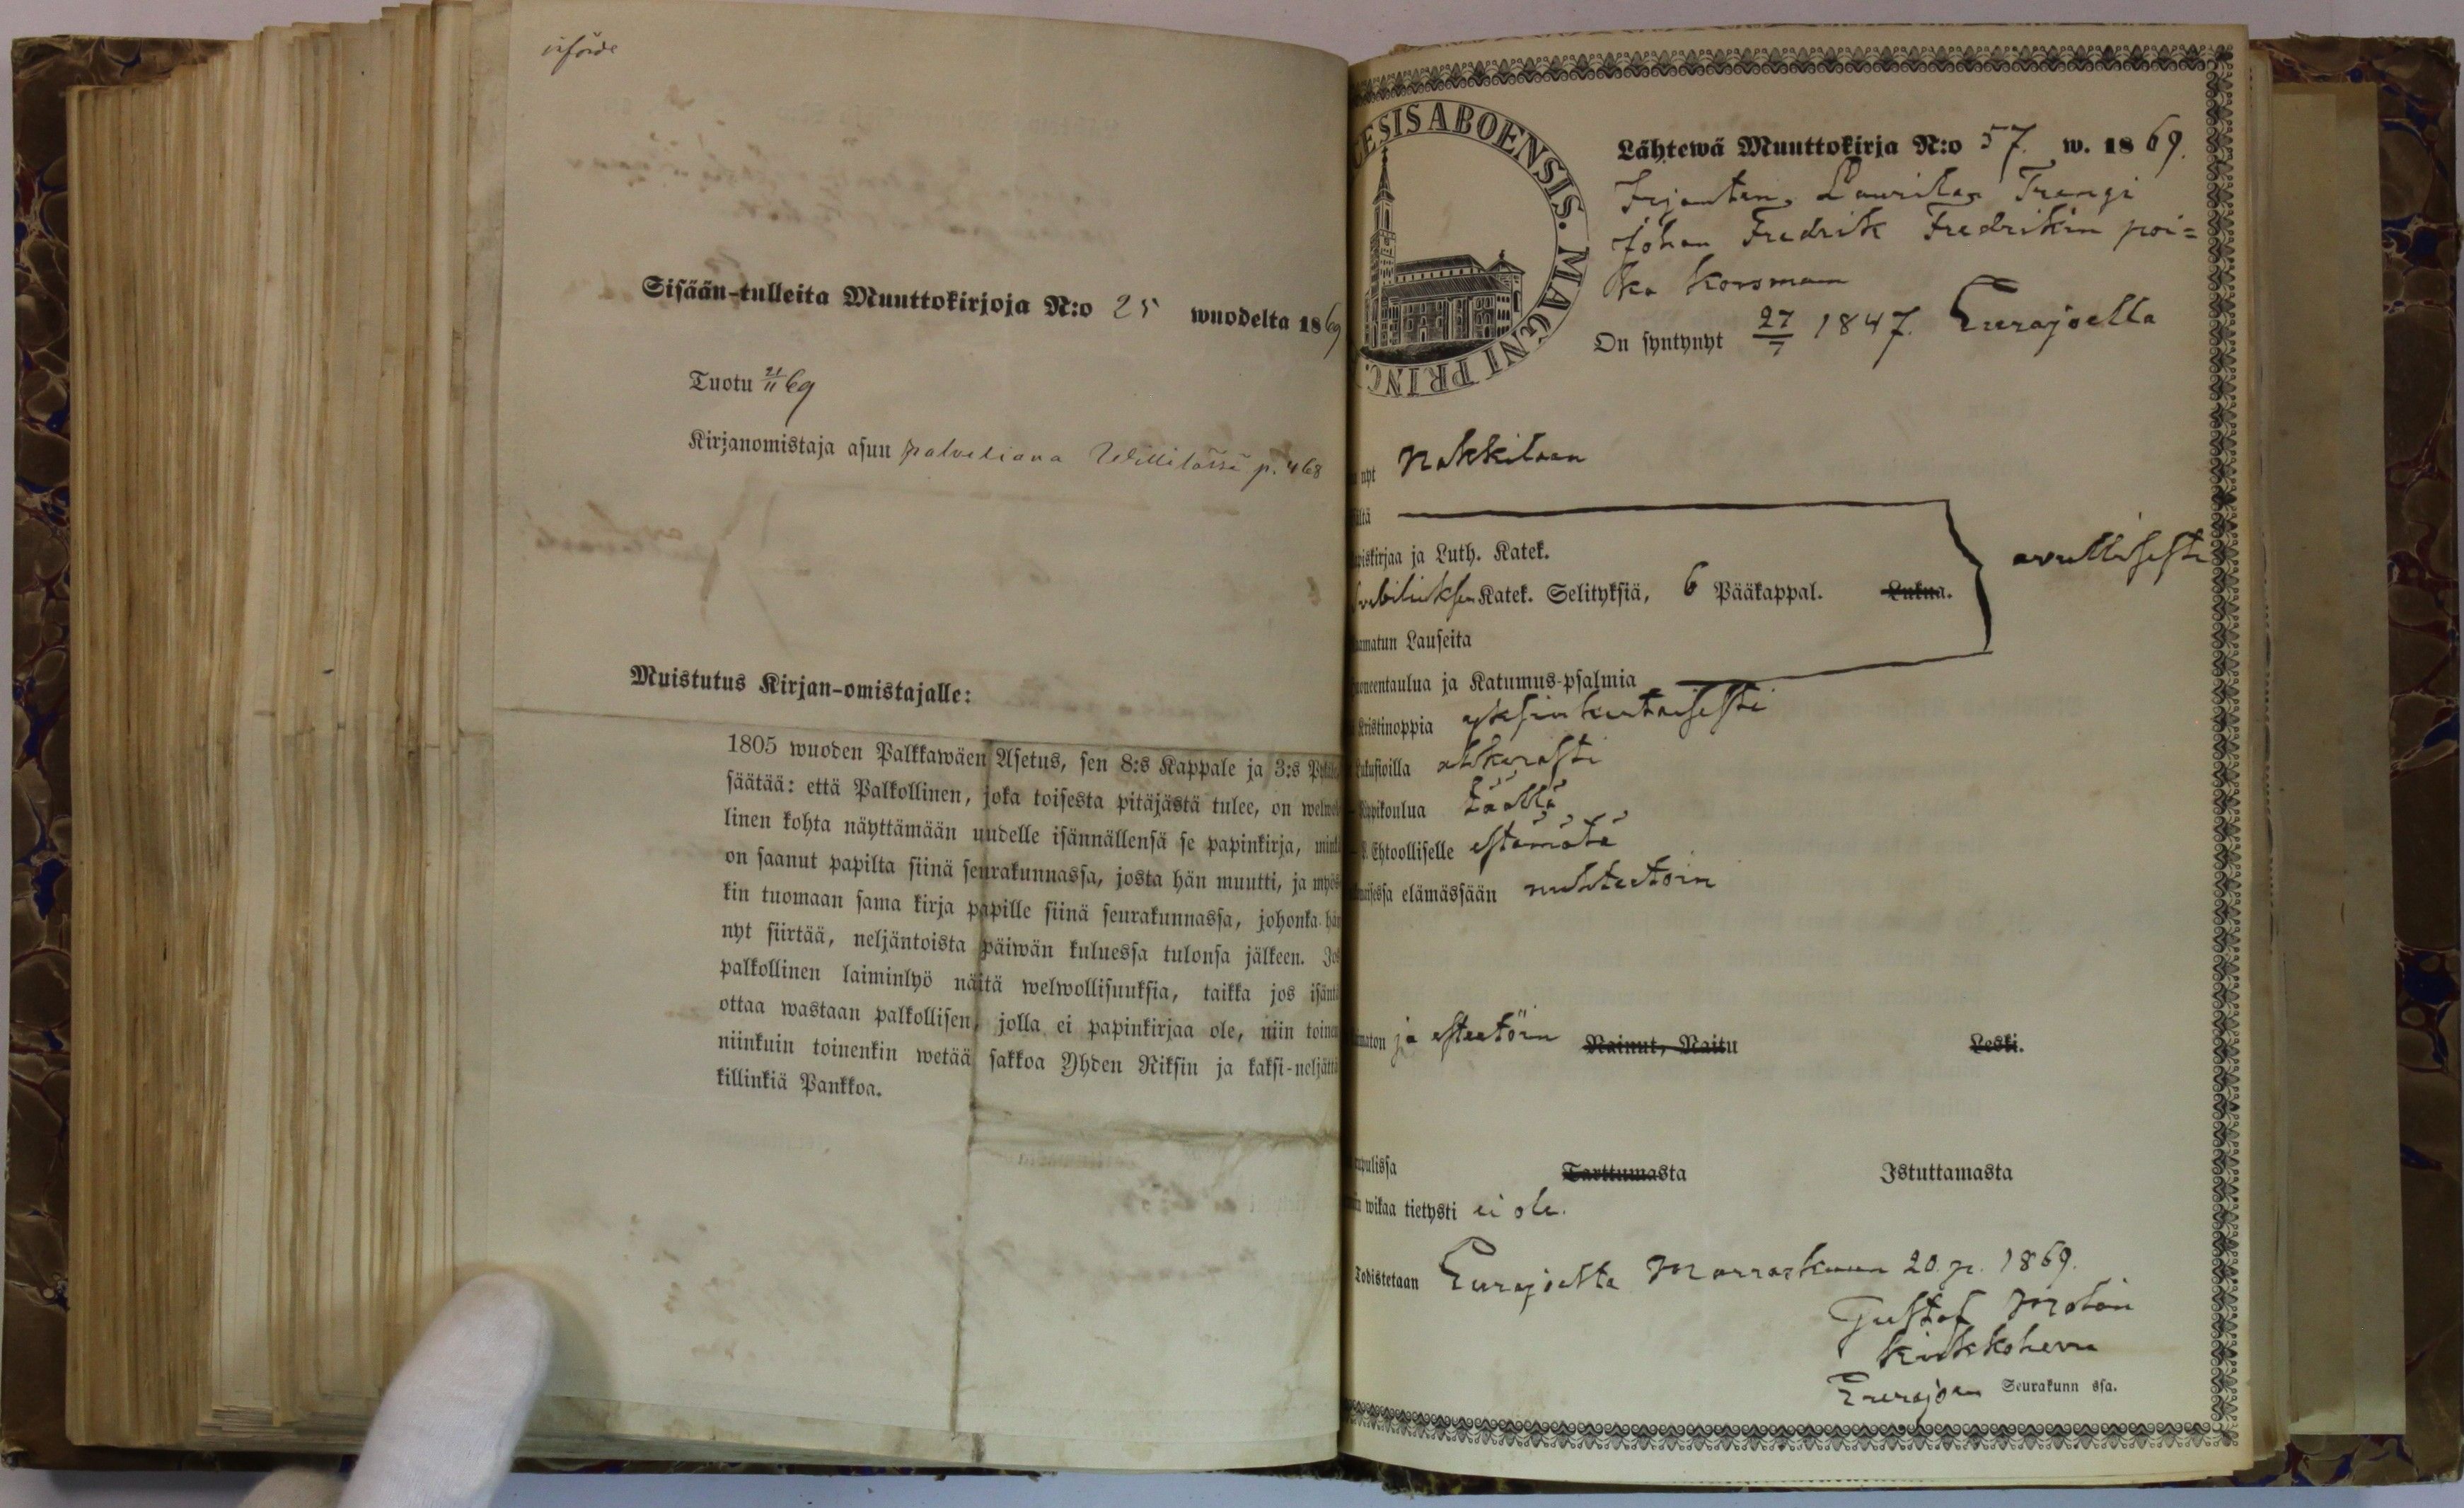 införde
Sisään-tulleita Muuttokirjoja N:o 25 wuodelta 1869
Tuotu 21/11 69
Kirjanomistaja asuu palveliana Willilässä p. 468
Muistutus Kirjan-omistajalle:
1805 wuoden Palkkawäen Asetus, sen 8:s Kappale ja 3:s
säätää: että Palkollinen, joka toisesta pitäjästä tulee, on welwol
linen kohta näyttämään uudelle isännällensä se papinkirja, minkä
on saanut papilta siinä seurakunnassa, josta hän muutti, ja myös
kin tuomaan sama kirja papille siinä seurakunnassa, johonka hän
nyt siirtää, neljäntoista päiwän kuluessa tulonsa jälkeen. Jos
palkollinen laiminlyö näitä welwollisuuksia, taikka jos isäntä
ottaa wastaan palkollisen, jolla ei papinkirjaa ole, niin toinen
niinkuin toinenkin wetää sakkoa Yhden Riksin ja kaksi-neljättä
killinkiä Pankkoa.
CESIS ABOENSIS. MAGNI PRINC
Lähtewä Muuttokirja N:o 57. w. 1869.
Irjanten Laurilan Trengi
Johan Fredrik Fredrikin poi=
ka Korsman
On syntynyt 27/7 1847. Eurajoella
nyt Nakkilaan
ältä
piskirjaa ja Luth. Katek. avullisesti
Svebiliuksen Katek. Selityksiä, 6 Pääkappal. Lukua.
amatun Lauseita
oneentaulua ja Katumus-psalmia
Kristinoppia yksinkertaisesti
Lukusioilla ahkerasti
Rippikoulua täällä
Ehtoolliselle estämätä
elämässään nuhteetoin
maton ja esteetöin Nainut, Naitu Leski.
upulissa Tarttumasta Istuttamasta
wikaa tietysti ei ole.
Todistetaan Eurajoella Marraskuun 20. p. 1869.
Gustaf Molin
Kirkkoherra
Eurajoen Seurakunn ssa.